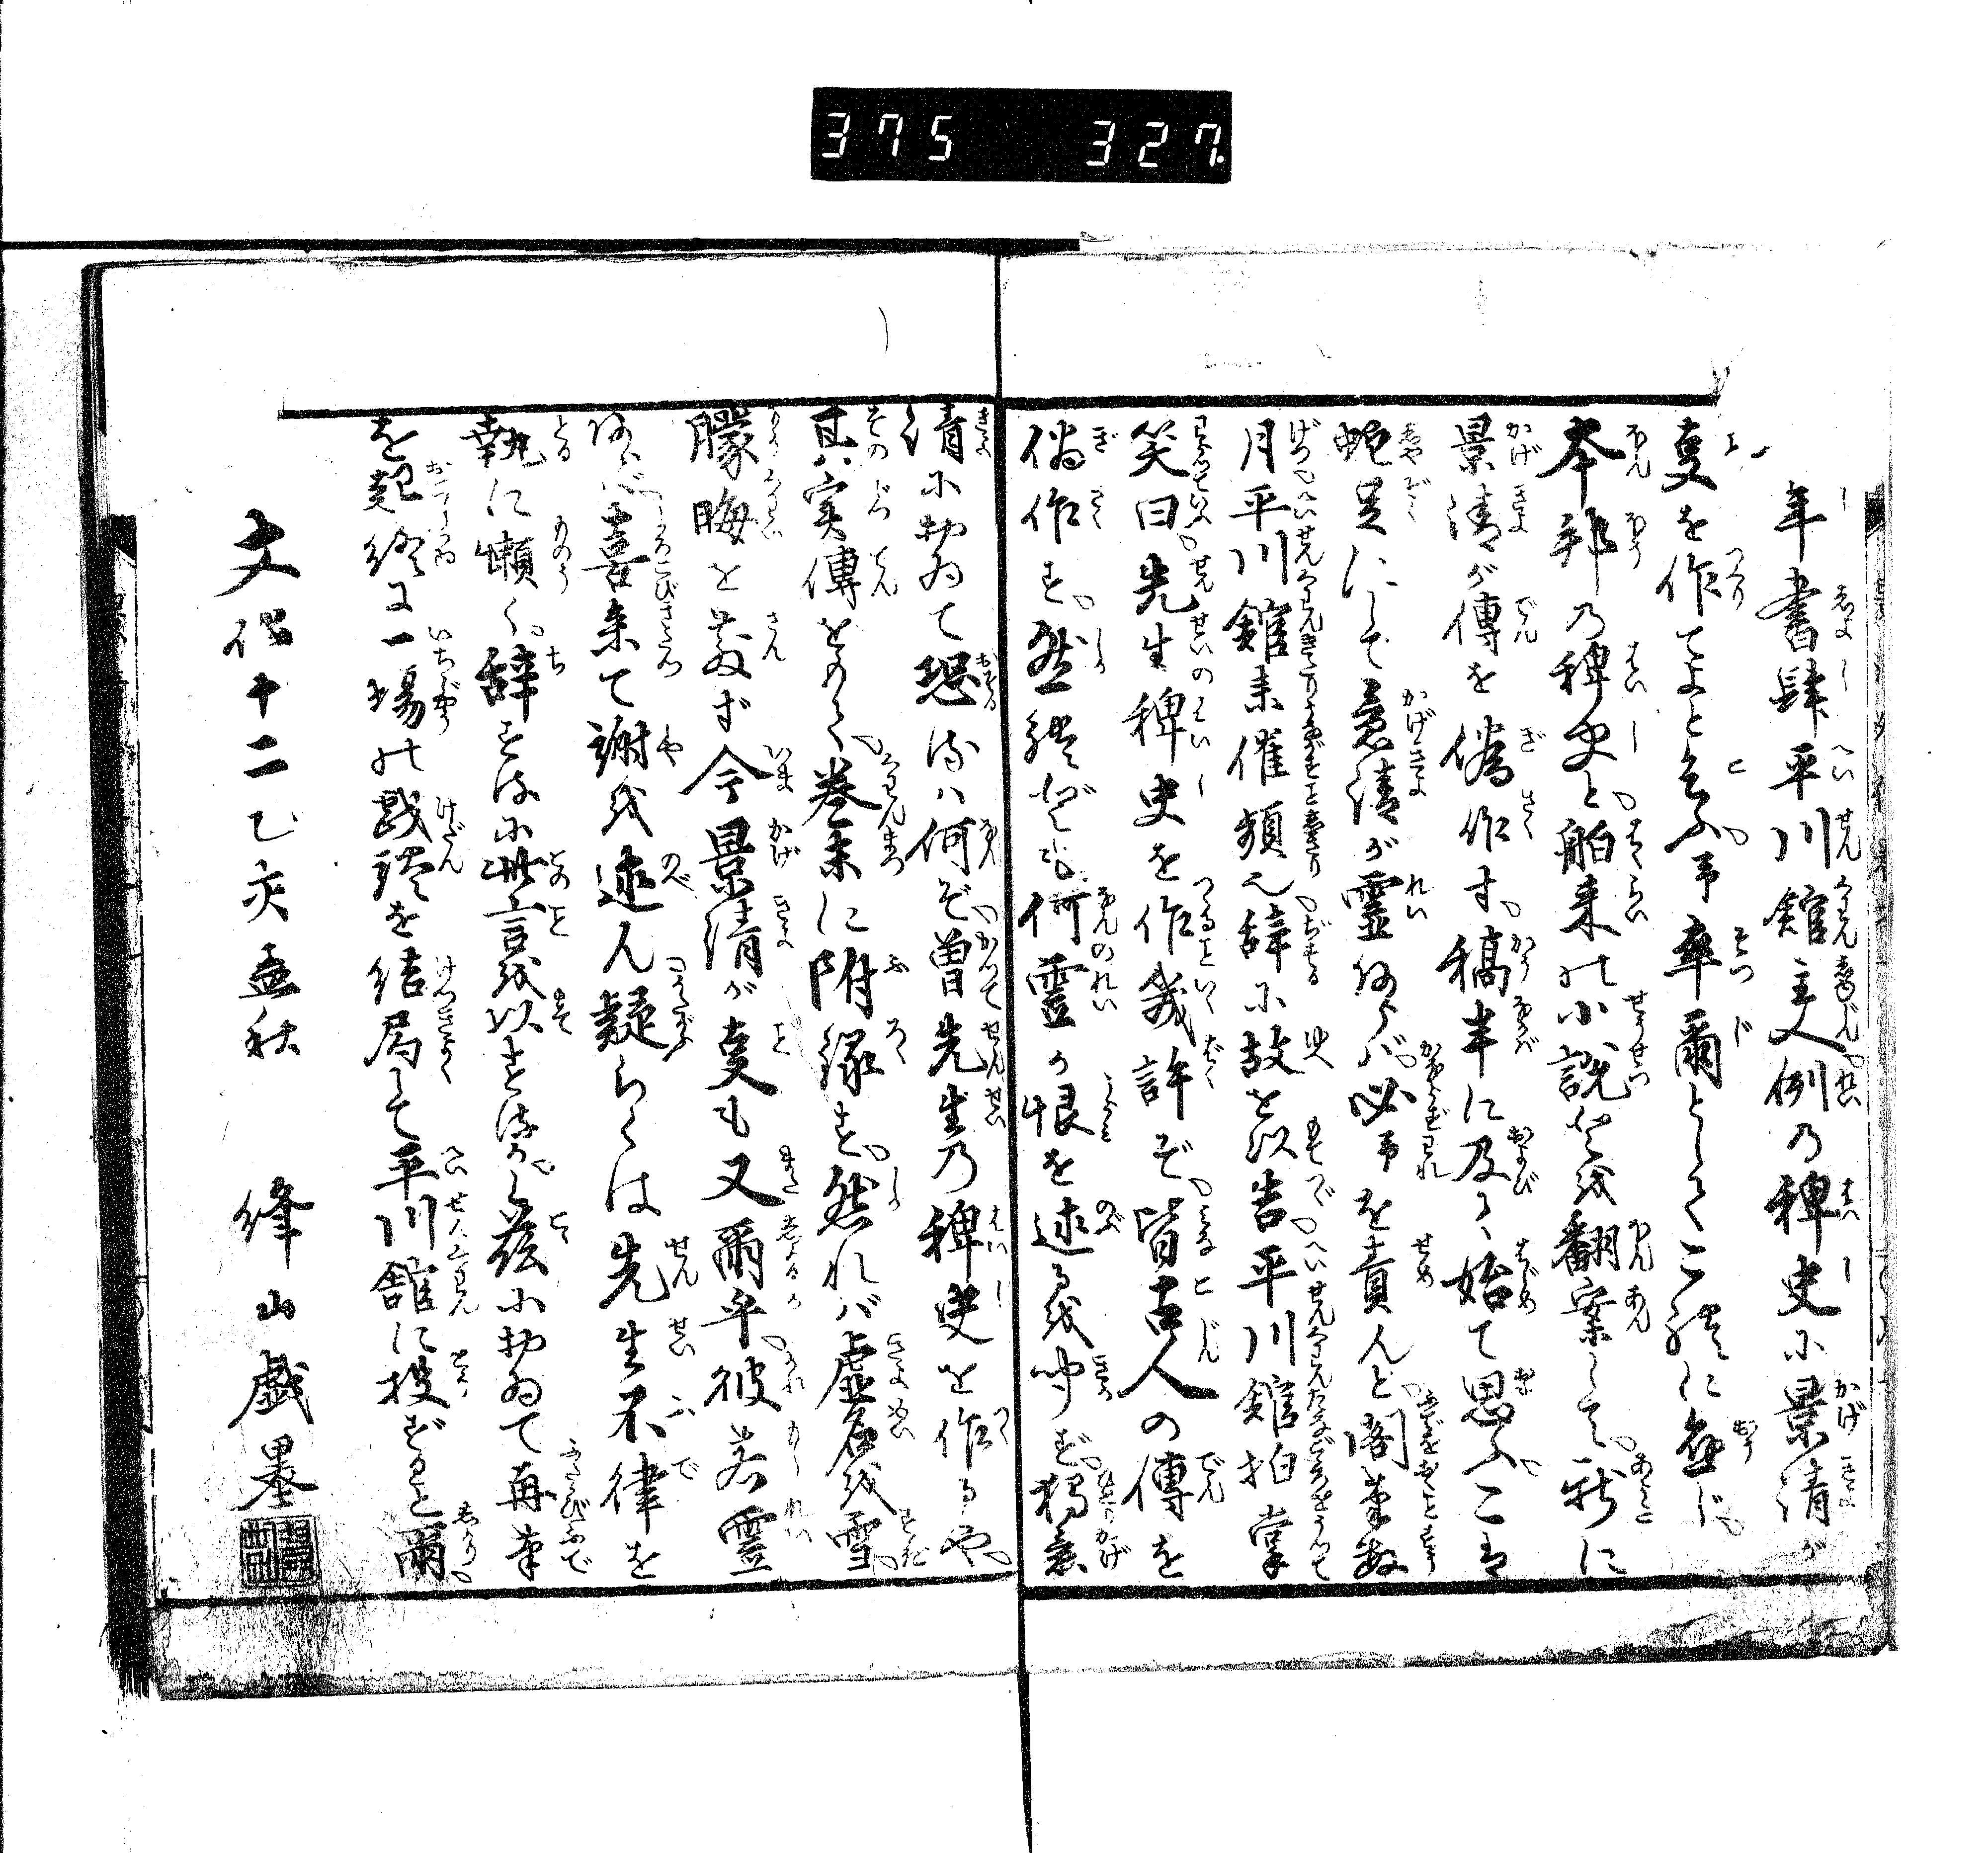 375 327
年書肆平川館主人例の稗史に景清が
事を作てよと乞ふ予卒爾としてこれに応じ
本邦の稗史と舶来の小説とを翻案して新に
景清が傳を偽作す稿半に及て始て思ふこは
蛇足にして景清が霊あらバ必予を責んと閣筆数
月平川館来催頻也辞に故を以告平川館拍掌
笑曰先生稗史を作幾許ぞ皆古人の傳を
偽作す然れども何霊か恨を述るを聞ず独景
清に於ゐて恐るハ何ぞ曽先生の稗史を作るや
其実傳をもて巻末に附録す然れバ虚名を雪
朦晦を散ず今景清が事も又爾乎彼若霊
あらバ喜来て謝を述ん疑らくは先生不律を
執に懶く辞とするに此言を以するか茲に於ゐて再筆
を起終に一場の戯談を結局して平川館に投ずること爾
文化十二乙亥孟秋
絳山戯墨